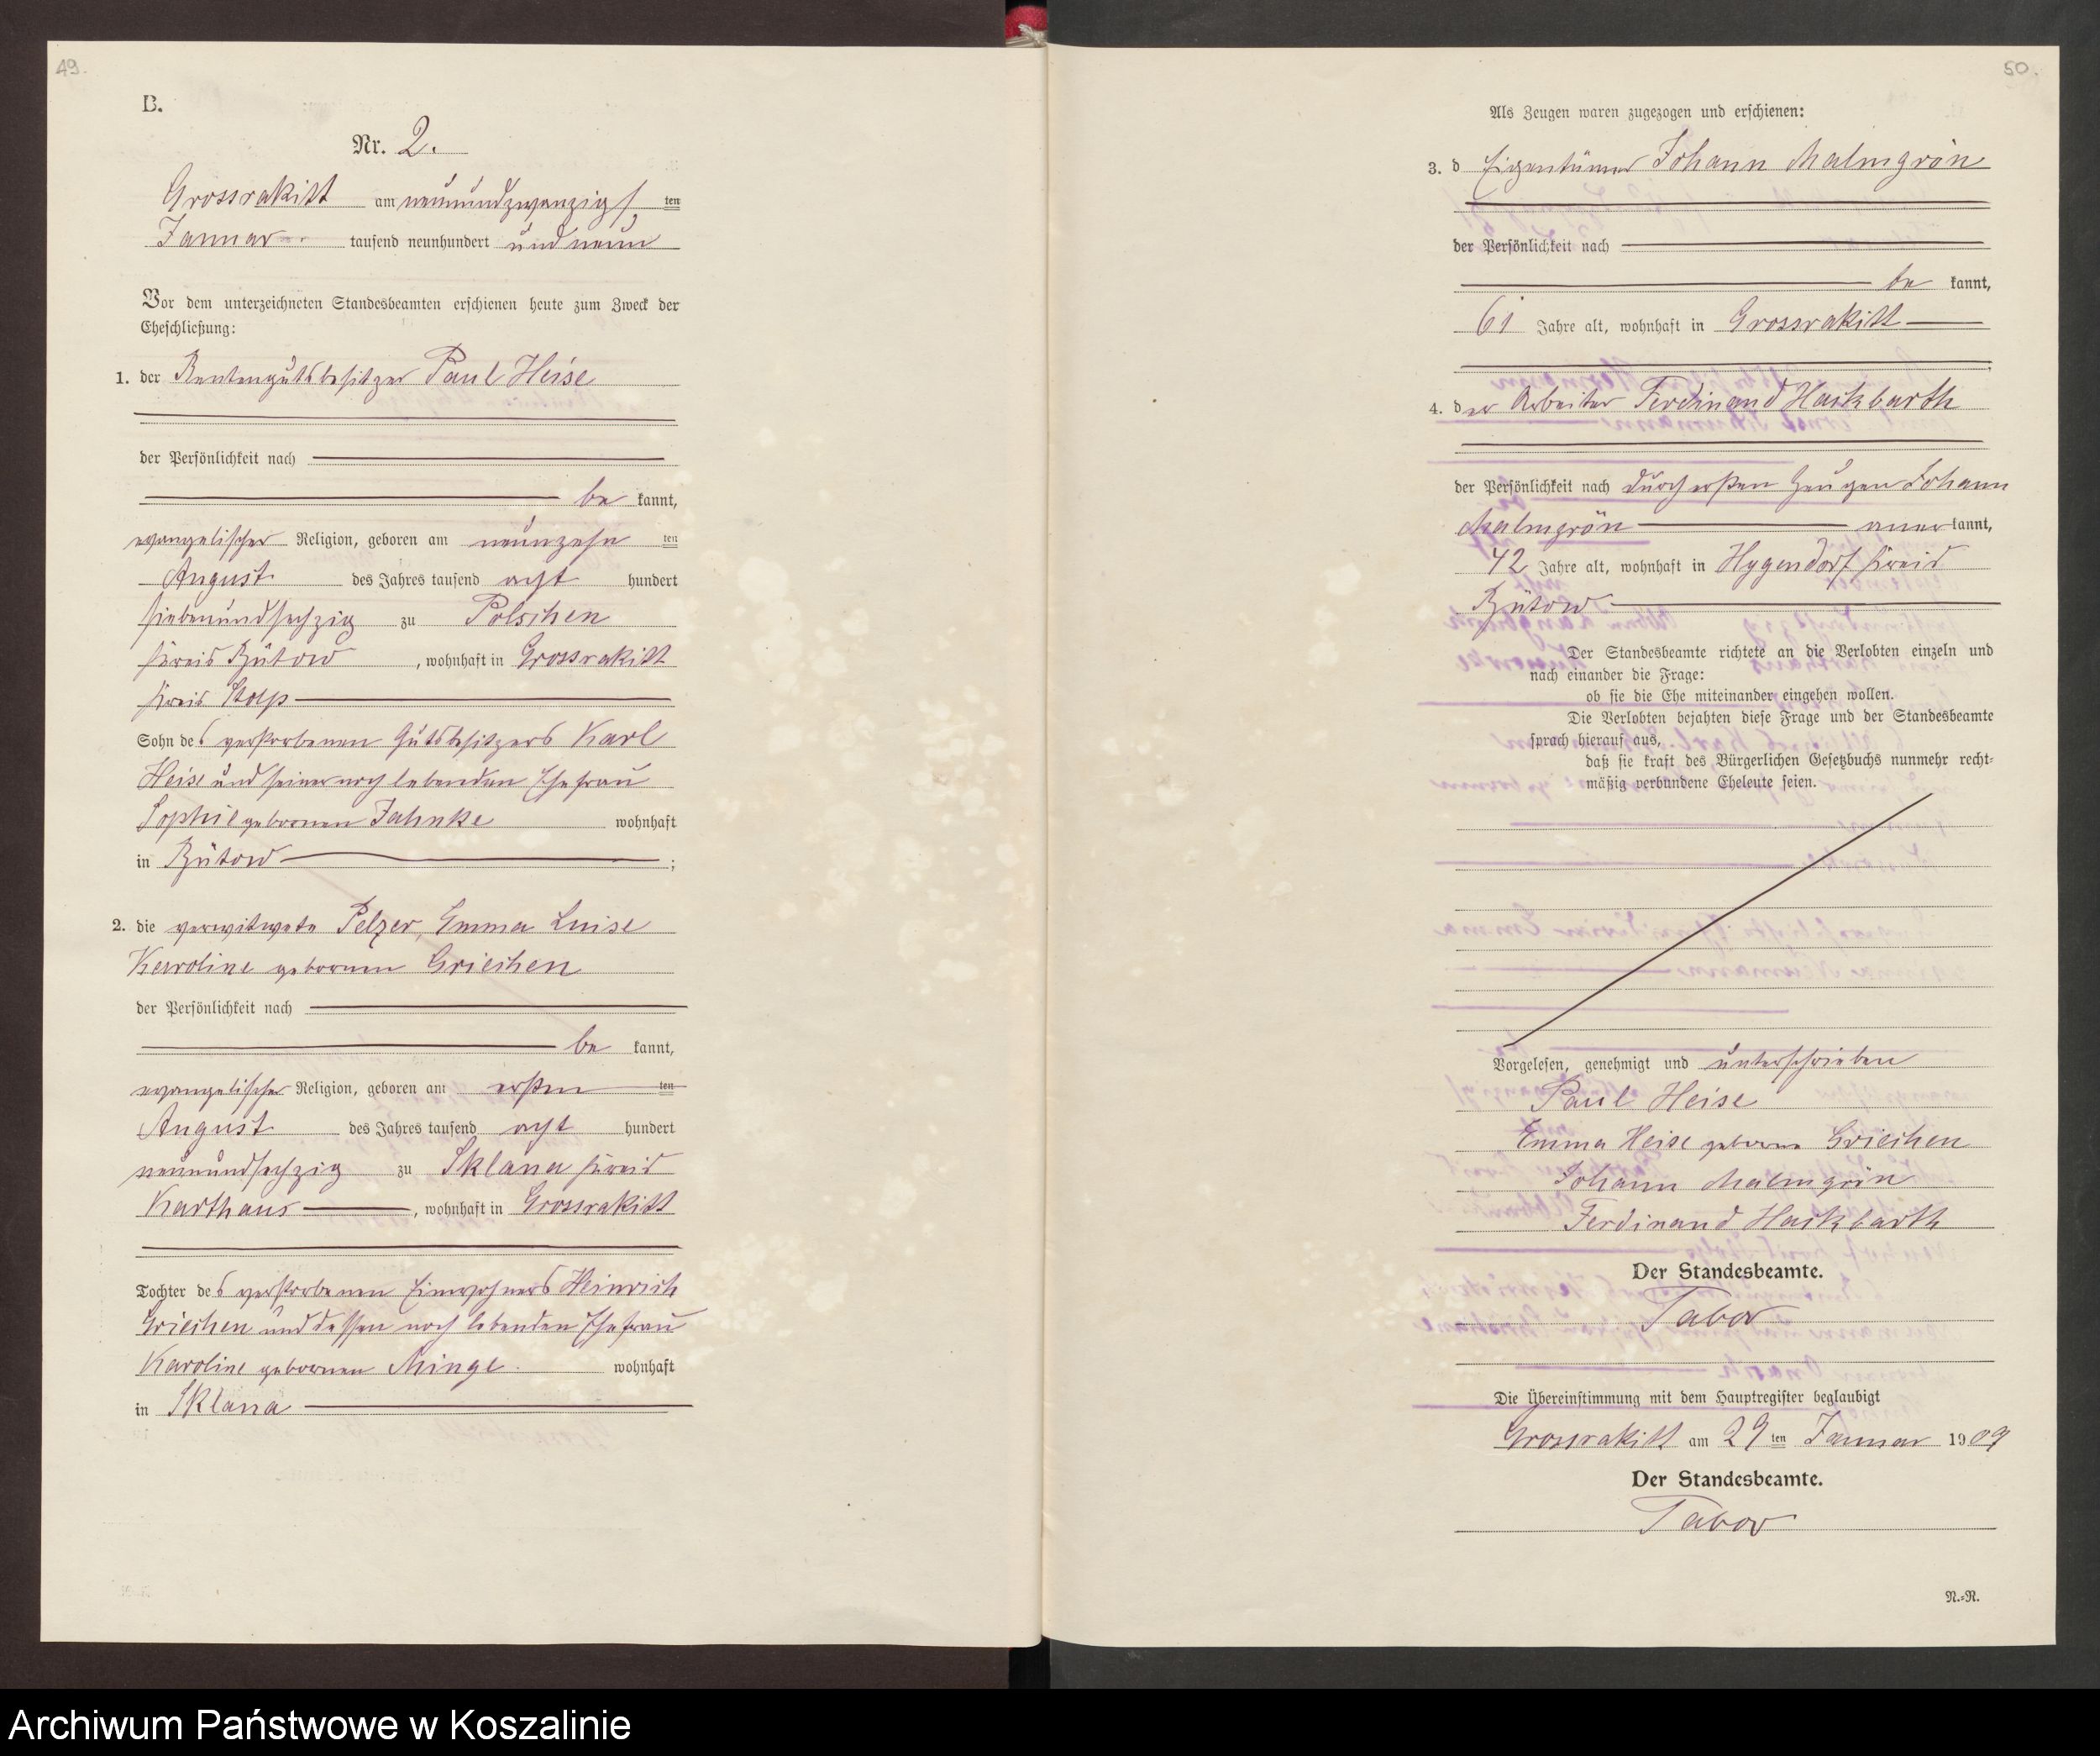 49.
B.
Nr. 2.
Grossrakitt am neunundzwanzigsten
Januar tausend neunhundert und neun
Vor dem unterzeichneten Standesbeamten erschienen heute zum Zweck der
Eheschließung:
1. der Rentengutsbesitzer Paul Heise
der Persönlichkeit nach
be kannt,
evangelischer Religion, geboren am neunzehn ten
August des Jahres tausend acht hundert
siebenundsechzig zu Polschen
Kreis Bütow, wohnhaft in Grossrakitt
Kreis Stolp
Sohn des verstorbenen Gutsbesitzers Karl
Heise und seiner noch lebenden Ehefrau
Sophie geborenen Jahnke wohnhaft
in Bütow ;
2. die verwitwete Pelzer, Emma Luise
Karoline geborenen Griechen
der Persönlichkeit nach
be kannt,
evangelischer Religion, geboren am ersten ten
August des Jahres tausend acht hundert
neunundsechzig zu Sklana Kreis
Karthaus, wohnhaft in Grossrakitt
Tochter des verstorbenen Einwohners Heinrich
Griechen und dessen noch lebenden Ehefrau
Karoline geborenen Minge wohnhaft
in Sklana
50.
Als Zeugen waren zugezogen und erschienen:
3. d Eigentümer Johann Malmgrön
der Persönlichkeit nach
be kannt,
61 Jahre alt, wohnhaft in Grossrakitt
4. der Arbeiter Ferdinand Hackbarth
der Persönlichkeit nach durch ersten Zeugen Johann
Malmgrön aner kannt,
42 Jahre alt, wohnhaft in Hygendorf Kreis
Bütow
Der Standesbeamte richtete an die Verlobten einzeln und
nach einander die Frage:
ob sie die Ehe miteinander eingehen wollen.
Die Verlobten bejahten diese Frage und der Standesbeamte
sprach hierauf aus,
daß sie kraft des Bürgerlichen Gesetzbuchs nunmehr recht-
mäßig verbundene Eheleute seien.
Vorgelesen, genehmigt und unterschrieben
Paul Heise
Emma Heise geborene Griechen
Johann Malmgrön
Ferdinand Hackbarth
Der Standesbeamte.
Tabor
Die Übereinstimmung mit dem Hauptregister beglaubigt
Grossrakitt am 29 ten Januar 1909
Der Standesbeamte.
Tabor
N.-R.
Archiwum Państwowe w Koszalinie